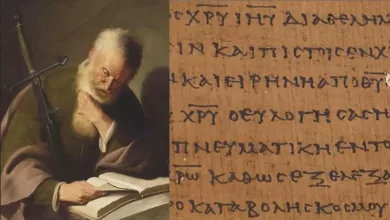 ΟϹ Χ̅Ρ̅Υ̅ Ι̅Η̅Υ̅ ΔΙΑ ΘΕΛΗΜ
ΙΝ ΚΑΙ ΠΙϹΤΟΙϹ ΕΝ Χ
ΚΑΙ ΕΙΡΗΝΗ ΑΠΟ Θ̅Υ̅
Χ̅Ρ̅Υ̅ Ο ΕΥΛΟΓΗϹΑϹ Η
ΠΝΕΥΜΑΤΙΚΗ ΕΝ ΤΟ
Χ̅Ρ̅Ω̅ ΚΑΘΩϹ ΕΞΕΛΕΞΑ
ΡΟ ΚΑΤΑΒΟΛΗϹ ΚΟϹΜΟΥ